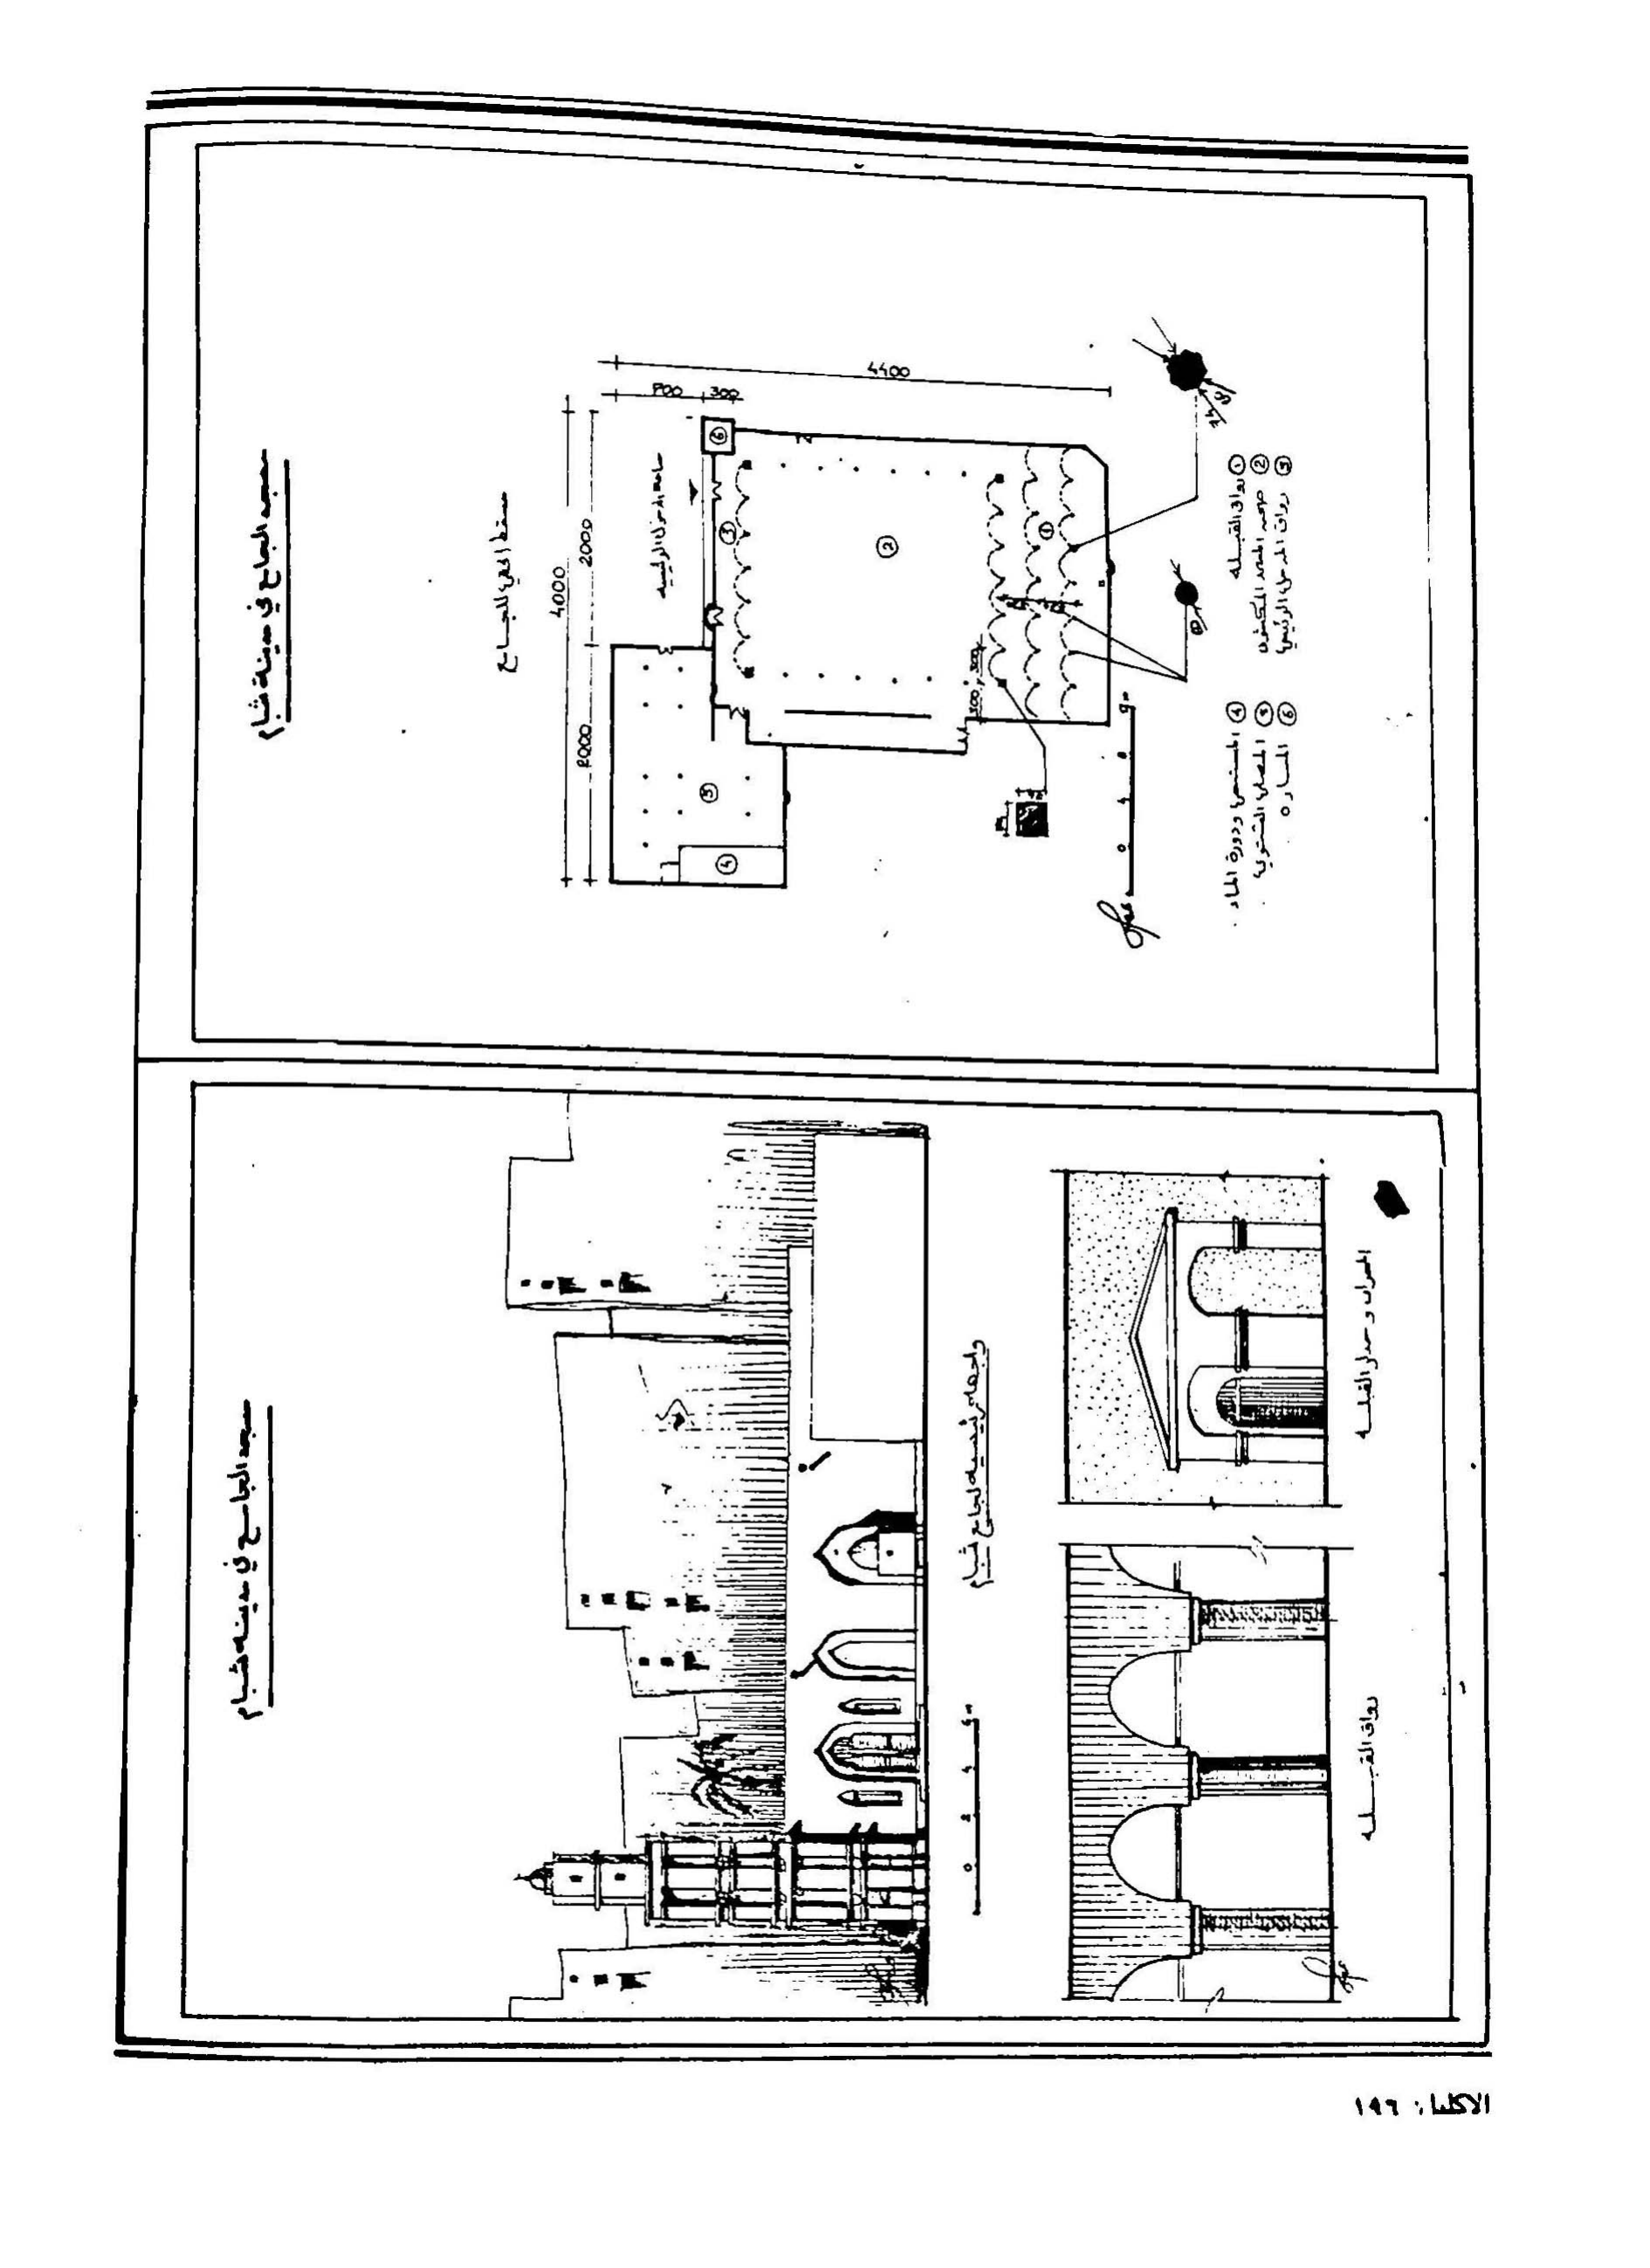 مسجد الجامع في مدينة شبام
مسقط افقي للجامع
4000
2000
2000
4400
700
300
ساحة المدخل الرئيسية
6
3
2
1
5
4
300
300
0
4
8
① رواق القبلة
② صحن المسجد المكشوف
③ رواق المدخل الرئيسي
④ المستحم ودورة الماء
⑤ المصلى الشتوي
⑥ المنارة
مسجد الجامع في مدينة شبام
واجهة رئيسية لجامع شبام
0
2
4
6m
رواق القبلة
المحراب وجدار القبلة
الاكليل: ١٩٦